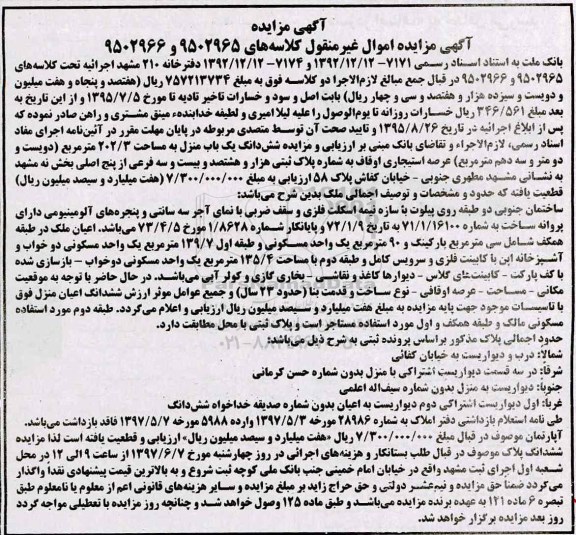 آگهی مزایده
آگهی مزایده اموال غیرمنقول کلاسه‌های ۹۵۰۲۹۶۵ و ۹۵۰۲۹۶۶
بانک ملت به استناد اسناد رسمی ۷۱۷۱- ۱۳۹۲/۱۲/۱۲ و ۷۱۷۴- ۱۳۹۲/۱۲/۱۲ دفترخانه ۲۱۰ مشهد اجرائیه تحت کلاسه‌های
۹۵۰۲۹۶۵ و ۹۵۰۲۹۶۶ در قبال جمع مبالغ لازم‌الاجرا دو کلاسه فوق به مبلغ ۷۵۷۲۱۳۷۳۴ ریال (هفتصد و پنجاه و هفت میلیون
و دویست و سیزده هزار و هفتصد و سی و چهار ریال) بابت اصل و سود و خسارات تاخیر تادیه تا مورخ ۱۳۹۵/۷/۵ و از این تاریخ به
بعد مبلغ ۳۴۶/۵۶۱ ریال خسارات روزانه تا یوم‌الوصول را علیه لیلا امیری و لطیفه خدابنده‌ء مینق مشتری و راهن صادر نموده که
پس از ابلاغ اجرائیه در تاریخ ۱۳۹۵/۸/۲۶ و تایید صحت آن توسط متصدی مربوطه در پایان مهلت مقرر در آئین‌نامه اجرای مفاد
اسناد رسمی، لازم‌الاجراء و تقاضای بانک مبنی بر ارزیابی و مزایده شش‌دانگ یک باب منزل به مساحت ۲۰۲/۳ مترمربع (دویست و
دو متر و سه دهم مترمربع) عرصه استیجاری اوقاف به شماره پلاک ثبتی هزار و هشتصد و بیست و سه فرعی از پنج اصلی بخش نه مشهد
به نشانی مشهد مطهری جنوبی - خیابان کفاش پلاک ۵۸ ارزیابی به مبلغ ۷/۳۰۰/۰۰۰/۰۰۰ (هفت میلیارد و سیصد میلیون ریال)
قطعیت یافته که حدود و مشخصات و توصیف اجمالی ملک بدین شرح می‌باشد:
ساختمان جنوبی دو طبقه روی پیلوت با سازه نیمه اسکلت فلزی و سقف ضربی با نمای آجر سه سانتی و پنجره‌های آلومینیومی دارای
پروانه ساخت به شماره ۷۱/۱/۱۶۱۰۰ به تاریخ ۷۲/۱/۹ و پایانکار شماره ۱/۸۶۲۸ مورخ ۷۳/۴/۵ می‌باشد. اعیان ملک در طبقه
همکف شامل سی مترمربع پارکینگ و ۹۰ مترمربع یک واحد مسکونی و طبقه اول ۱۳۹/۷ مترمربع یک واحد مسکونی دو خواب و
آشپزخانه اپن با کابینت فلزی و سرویس کامل و طبقه دوم با مساحت ۱۳۵/۴ مترمربع یک واحد مسکونی دوخواب - بازسازی شده
با کف پارکت - کابینت‌های گلاس - دیوارها کاغذ و نقاشی - بخاری گازی و کولر آبی می‌باشد. در حال حاضر با توجه به موقعیت
مکانی - مساحت - عرصه اوقافی - نوع ساخت و قدمت بنا (حدود ۲۳ سال) و جمیع عوامل موثر ارزش ششدانگ اعیان منزل فوق
با تاسیسات موجود جهت پایه مزایده به مبلغ هفت میلیارد و سیصد میلیون ریال ارزیابی و اعلام می‌گردد. طبقه دوم مورد استفاده
مسکونی مالک و طبقه همکف و اول مورد استفاده مستاجر است و پلاک ثبتی با محل مطابقت دارد.
حدود اجمالی پلاک مذکور براساس پرونده ثبتی به شرح ذیل می‌باشد:
شمالا: درب و دیواریست به خیابان کفائی
شرقا: در سه قسمت دیواریست اشتراکی با منزل بدون شماره حسن کرمانی
جنوبا: دیواریست به منزل بدون شماره سیف‌اله اعلمی
غربا: اول دیواریست اشتراکی دوم دیواریست به اعیان بدون شماره صدیقه خداخواه شش‌دانگ
طی نامه استعلام بازداشتی دفتر املاک به شماره ۲۸۹۸۶ مورخه ۱۳۹۷/۵/۳ وارده ۵۹۸۸ مورخه ۱۳۹۷/۵/۷ فاقد بازداشت می‌باشد.
آپارتمان موصوف در قبال مبلغ ۷/۳۰۰/۰۰۰/۰۰۰ ریال «هفت میلیارد و سیصد میلیون ریال» ارزیابی و قطعیت یافته است لذا مزایده
ششدانگ پلاک موصوف در قبال طلب بستانکار و هزینه‌های اجرائی در روز چهارشنبه مورخ ۱۳۹۷/۶/۷ از ساعت ۹ الی ۱۲ در محل
شعبه اول اجرای ثبت مشهد واقع در خیابان امام خمینی جنب بانک ملی کوچه ثبت شروع و به بالاترین قیمت پیشنهادی نقداً واگذار
می‌گردد ضمناً حق مزایده و نیم‌عشر دولتی و حق حراج زاید بر مبلغ مزایده و سایر هزینه‌های قانونی اعم از معلوم یا نامعلوم طبق
تبصره ۶ ماده ۱۲۱ به عهده برنده مزایده می‌باشد و طبق ماده ۱۲۵ وصول خواهد شد و چنانچه روز مزایده با تعطیلی مواجه گردد
روز بعد مزایده برگزار خواهد شد.